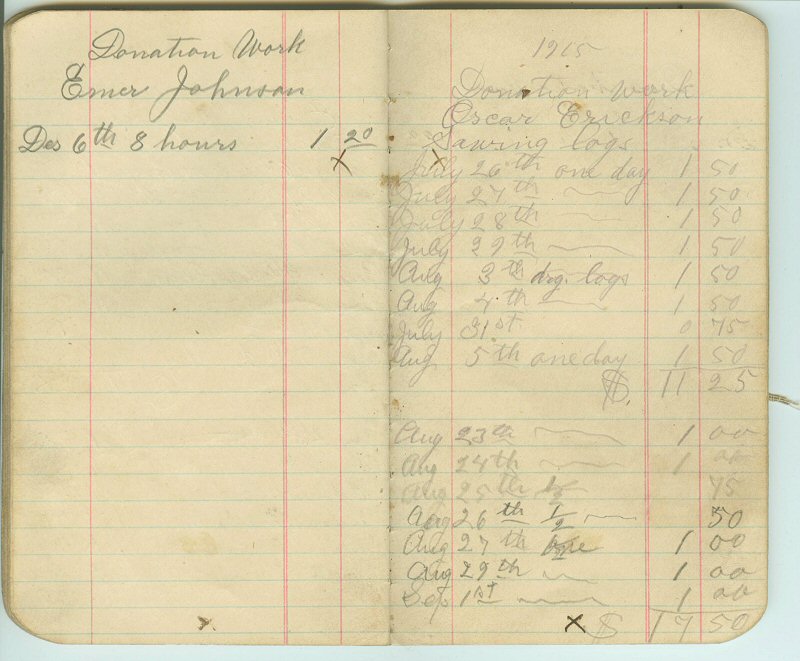 Donation Work
Emer Johnson
Des 6th 8 hours 1 20
x
1915
Donation work
Oscar Erickson
Sawing logs
x
July 26th one day 1 50
July 27th 1 50
July 28th 1 50
July 29th 1 50
Aug 3th logs 1 50
Aug 4th 1 50
July 31st 0 75
Aug 5th one day 1 50
$. 11 25
Aug 23th 1 00
Aug 24th 1 00
Aug 25th 1/2 75
Aug 26th 1/2 50
Aug 27th 1 00
Aug 29th 1 00
Sep 1st 1 00
x $ 17 50